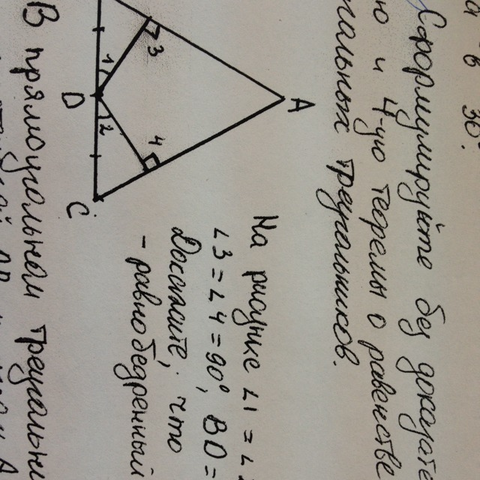 в 30°.
Сформулируйте без доказате
ю и 4-ую теоремы о равенстве
гольных треугольников.
A
3
4
1
2
D
C
На рисунке ∠1 = ∠2
∠3 = ∠4 = 90°, BD =
Докажите, что
- равнобедренный
В прямоугольном треугольни